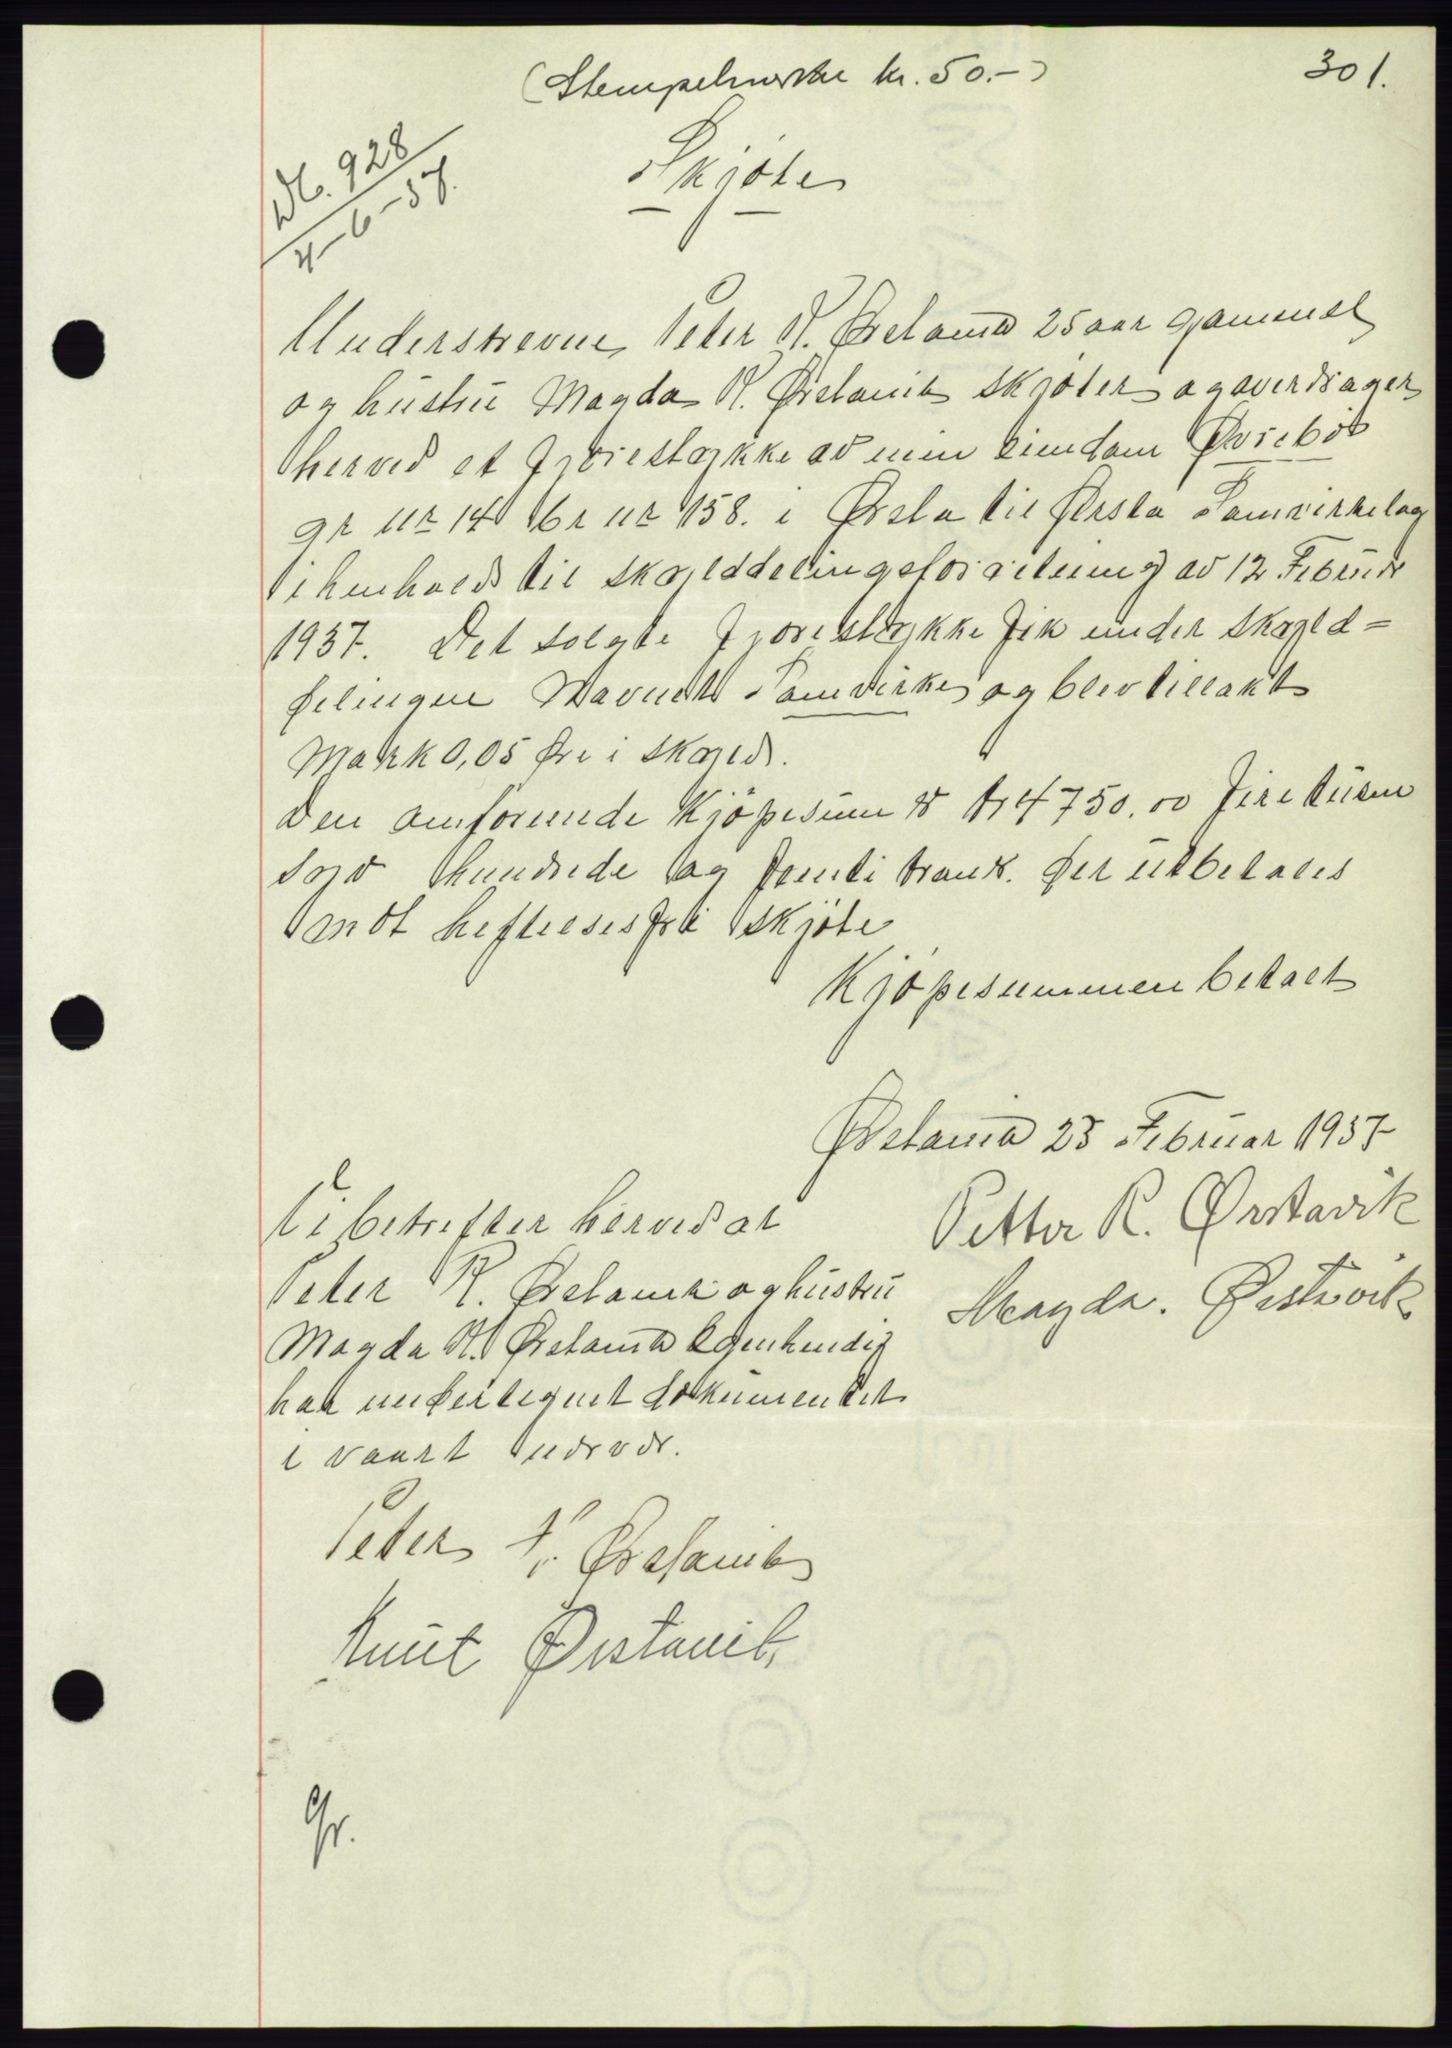 (Stempelmerke kr. 50.-)
301.
Nr. 928
4-6-37.
Skjøte
Underskrevne, Peter R. Ørstavik 25 aar gammel
og hustru Magda R. Ørstavik skjøter og averdrager
herved et jordestykke av min eiendom Øvrebø
gr nr 14 br nr 158. i Ørsta til Ørsta Samvirkelag
i henhold til skylddelingsforretning av 12 Februar
1937. Det solgte jordestykke fik under skyld=
delingen Navnet Samvirke og blev tillakt
Mark 0,05 Øre i skyld.
Den omforende Kjøpesum er kr 4750.00 fire tusen
syv hundrede og femti kroner. Der utbetales
mot heftelsesfri skjøte
Kjøpesummen betalt
Ørstavik 23 Februar 1937
Petter R. Ørstavik
Magda. Ørstavik
Vi betrefter herved at
Peter R. Ørstavik og hustru
Magda R. Ørstavik Egenhendig
har undertegnet dokumentet
i vaart nærvær.
Peter Ørstavik
Knut Ørstavik,
Gr.